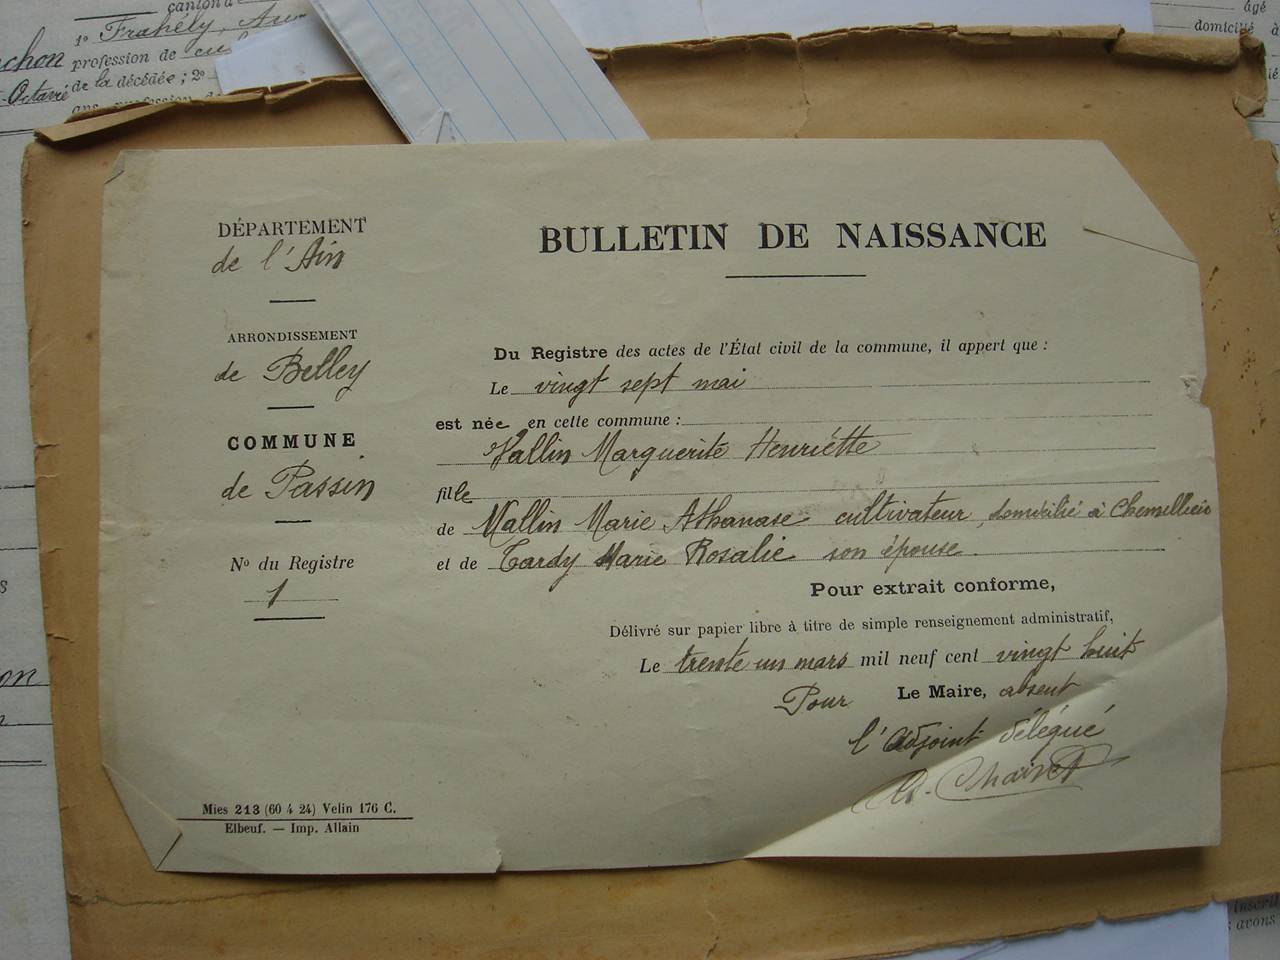 canton d
1º Frahély, Au
nchon profession de cu
Octavie de la décédée ; 2º
ans profession d
âgé
domicilié à
DÉPARTEMENT
de l'Ain
ARRONDISSEMENT
de Belley
COMMUNE
de Passin
Nº du Registre
1
BULLETIN DE NAISSANCE
Du Registre des actes de l'État civil de la commune, il appert que :
Le vingt sept mai
est née en cette commune :
Vallin Marguerite Henriette
fille
de Vallin Marie Athanase cultivateur, domicilié à Chemillieu
et de Tardy Marie Rosalie son épouse.
Pour extrait conforme,
Délivré sur papier libre à titre de simple renseignement administratif,
Le trente un mars mil neuf cent vingt huit
Pour Le Maire, absent
l'adjoint délégué
Mies 213 (60 4 24) Velin 176 C.
Elbeuf. — Imp. Allain
on
inscri
avons